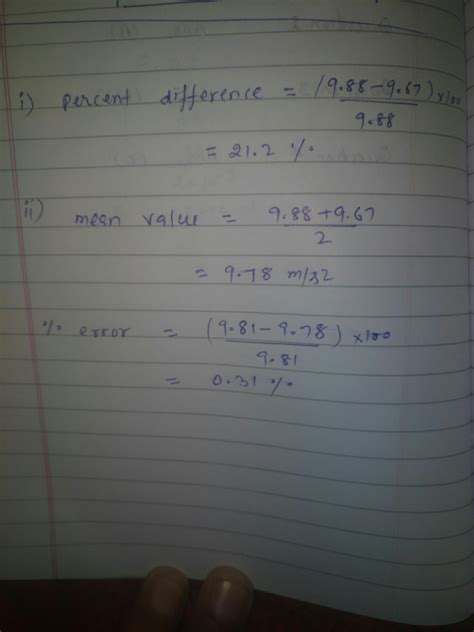 i) percent difference = (9.88-9.67) x100
9.88
= 21.2 %
ii) mean value = 9.88+9.67
2
= 9.78 m/s2
% error = (9.81-9.78) x100
9.81
= 0.31 %